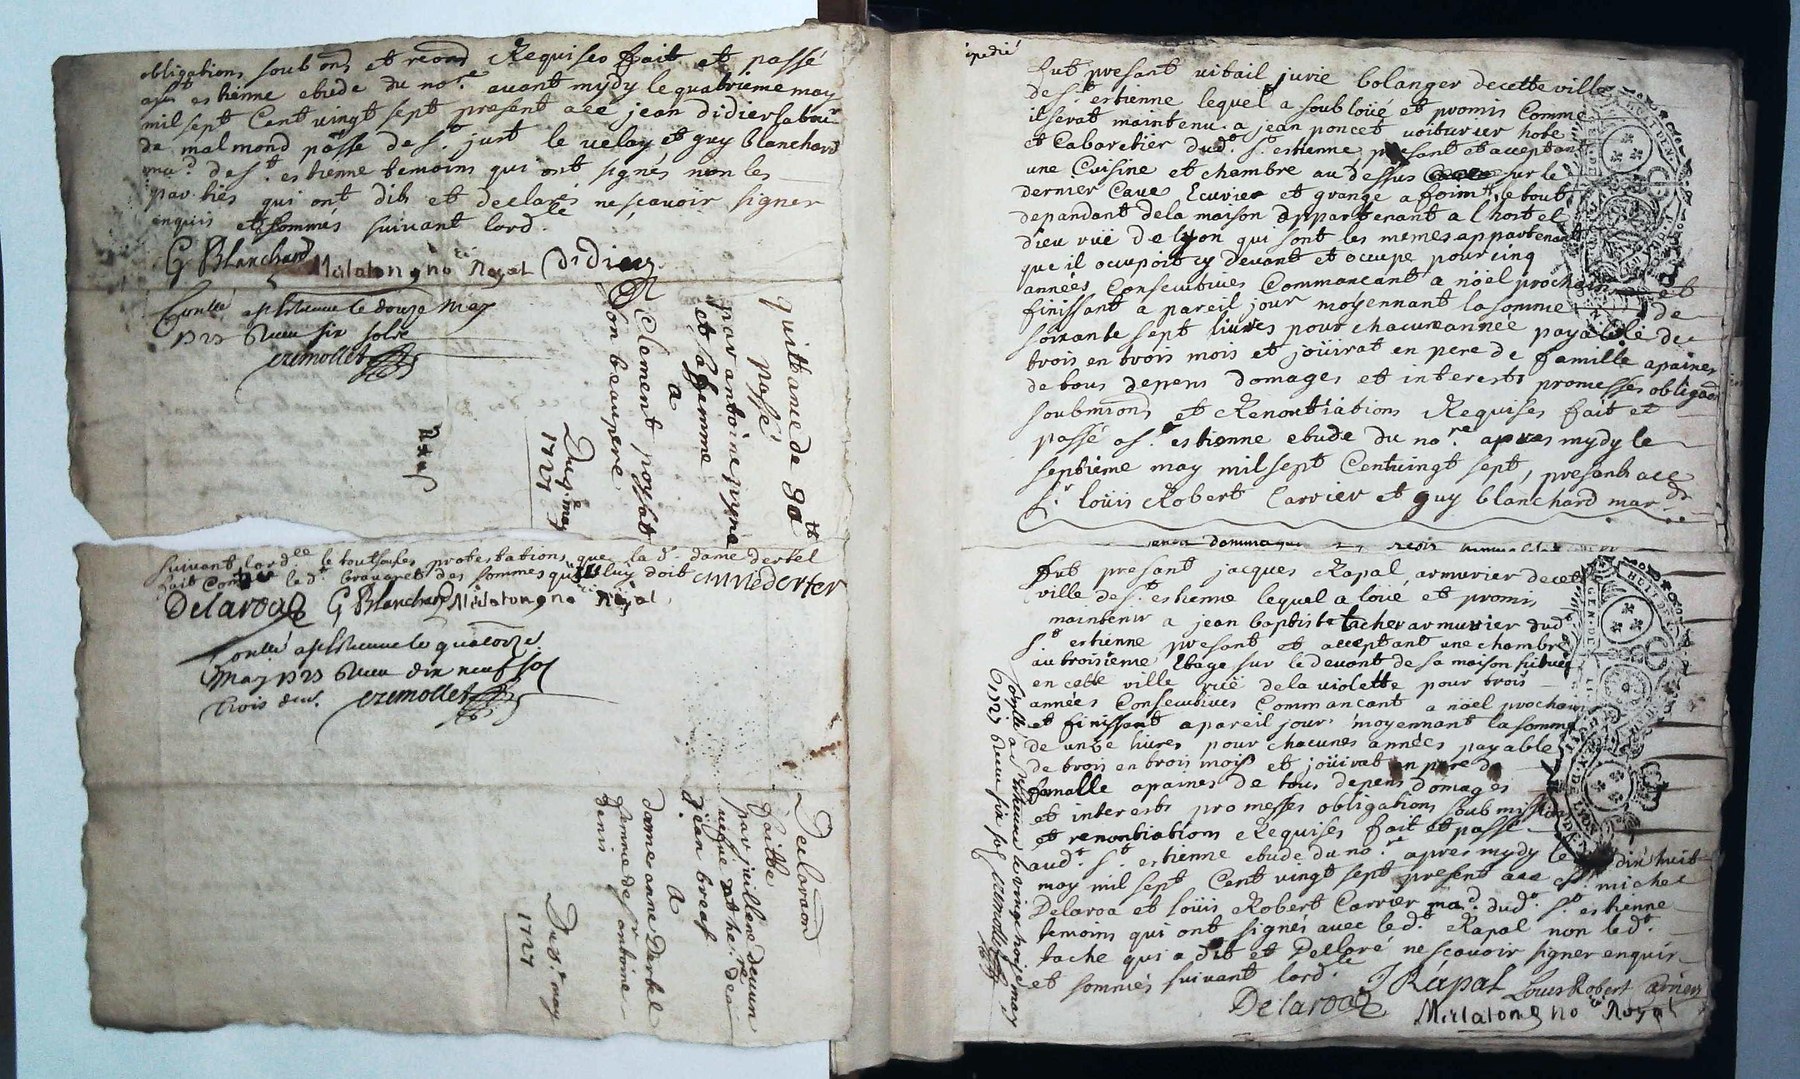 obligations soub ons et renond Requises fait et passé
a st estienne etude du nore avant mydy le quatrieme may
mil sept Cent vingt sept present aec jean didier labour
de malmond passe de st. just le velay et guy blanchard
mad. de st. estienne temoins qui ont signés non les
parties qui ont dit et declarés ne sçavoir signer
enquis et sommés suivant lord.le
G Blanchard no Royal Didier
may
Cremollet
quittance de
passé
par antoine
et sa femme
a
Clement
son beaupere
Du 4me may
1727
suivant lord.le le tout sous les protestations que la d. dame dertel
fait Contre le d. des sommes qu'il luy doit anne derter
Delaroa G Blanchard no Royal
may
Cremollet
Declaraon
faitte
par
a
dame anne Dertel
femme de sr antoine
Denis
Du 8.e may
1727
fut presant vitail jurie bolanger decette ville
de St. estienne lequel a soub loüé et promis Comme
il serat maintenu a jean poncet voiturier hote
et Cabaretier dud. St. estienne presant et acceptant
une Cuisine et chambre au dessus sur le
dernier Cave Ecurie et grange a foint le tout
depandant dela maison appartenant a l hostel
dieu rüe de lyon qui sont les memes appartenant
que il occupoit cy devant et occupe pour cinq
années Consecutives Commancant a nöel prochain et
finissant a pareil jour moyennant la somme de
soixante sept livres pour chacune année payable de
trois en trois mois et joüirat en pere de famille apaines
de tous depens domages et interests promesses obligaons
soubmions et Renontiations Requises fait et
passé a St. estienne etude du nore apres mydy le
septieme may mil sept Cent vingt sept, presants aec
Sr loüis Robert Carrier et guy blanchard mar
fut presant jacques Rapal armurier decette
ville de St. estienne lequel a loué et promis
maintenir a jean baptiste tacher armurier dud
St estienne presant et acceptant une chambre
au troisieme Etage sur le devant de sa maison situee
en cette ville rüe dela violette pour trois
années Consecutives Commancant a nöel prochain
et finissant a pareil jour moyennant la somme
de unze livres pour chacunes années payable
de trois en trois mois et joüirat en pere de
famalle apaines de tous depens domages
et interests promesses obligations soubmission
et renontiations Requises fait et passé
aud. St. estienne etude du nore apres mydy le dix huit
may mil sept Cent vingt sept present aec Sr. michel
Delaroa et loüis Robert Carrier mad. dud. St. estienne
temoins qui ont signés avec le d. Rapal non le d.
tache qui a dit et Dellaré ne sçavoir signer enquis
et sommés suivant lord.le
J Rapal Louis Robert
Delaroa no Royal